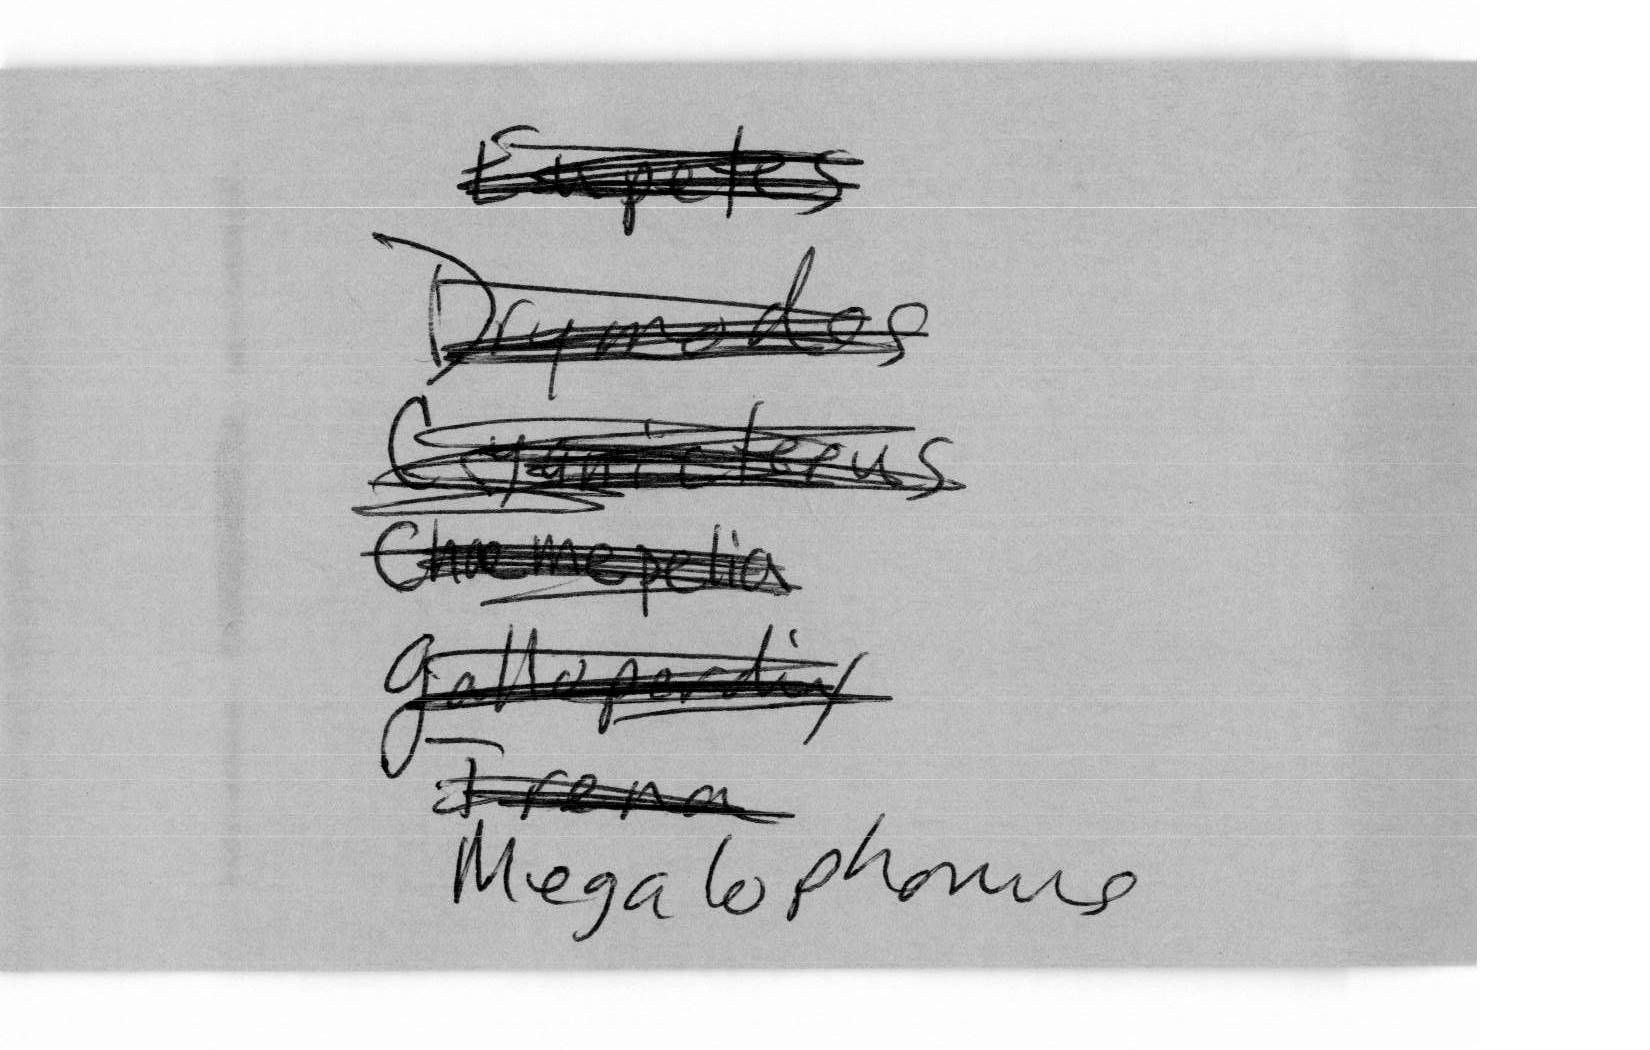 Eupetes
Drymodes
Chaemepelia
galloperdix
Irena
Megalophonus